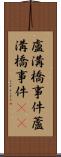 盧溝橋事件蘆
溝橋事件